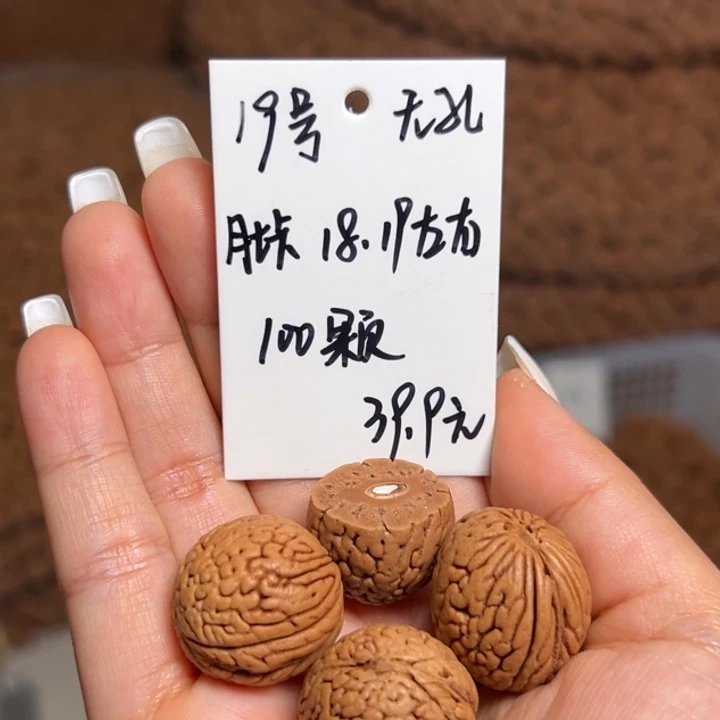 19号 无孔
胚卡 18.19左右
100颗
39.9元